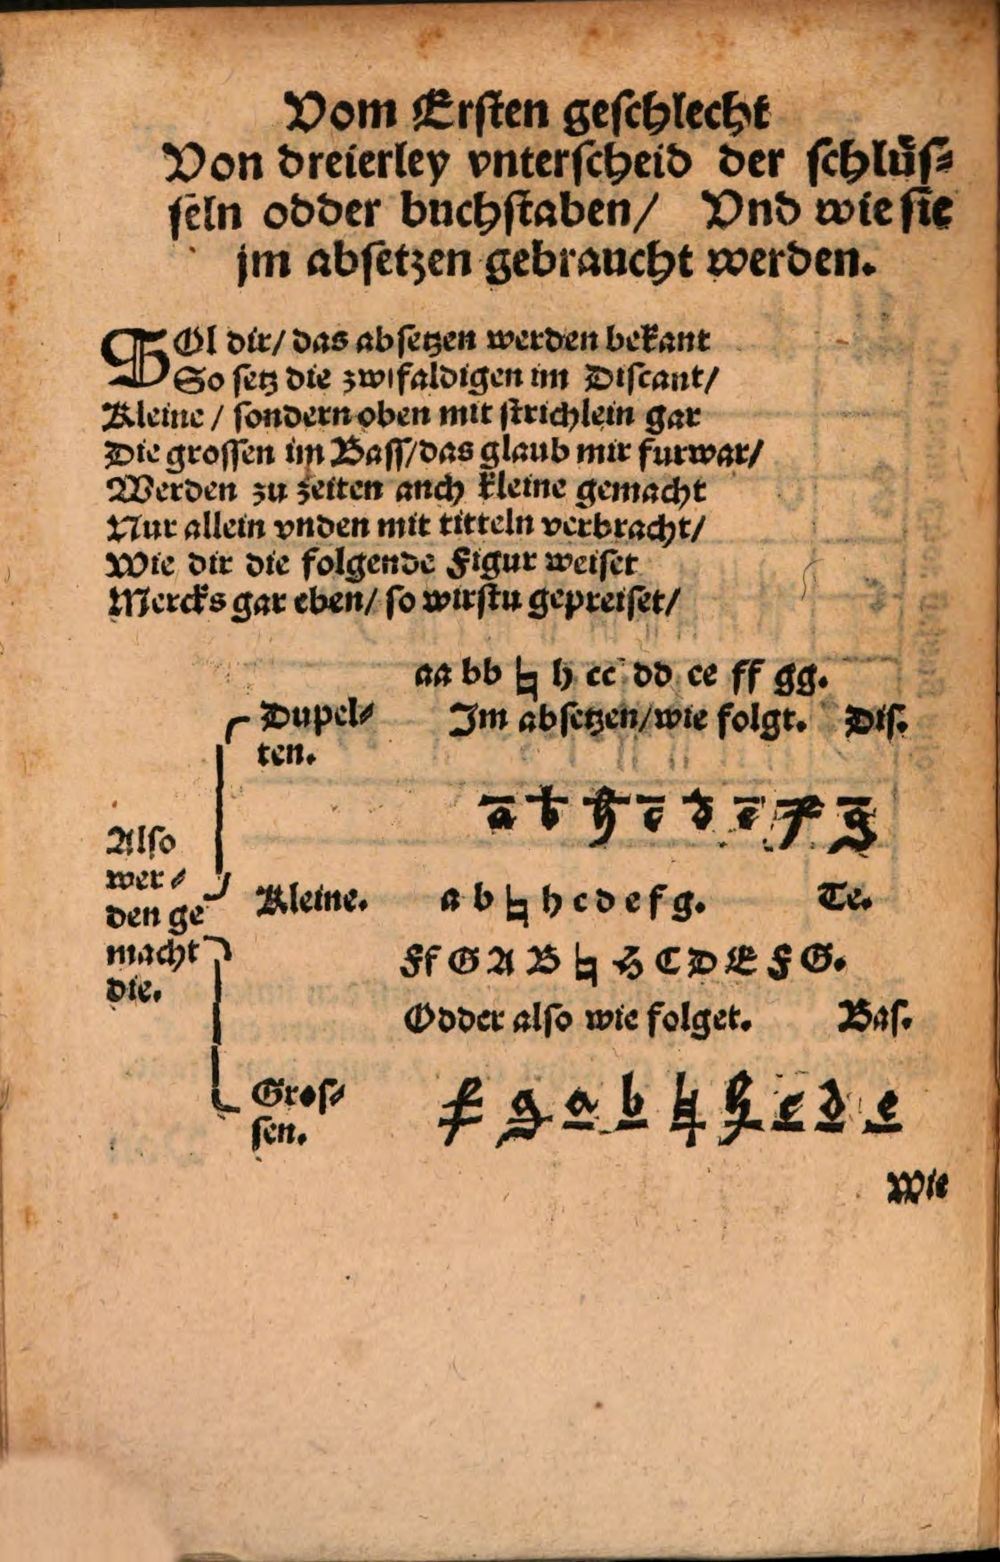 Vom Ersten geschlecht
Von dreierley vnterscheid der schlüs⸗
seln odder buchstaben/ Vnd wie sie
jm absetzen gebraucht werden.
SOl dir/ das absetzen werden bekant
So setz die zwifaldigen im Discant/
Kleine / sondern oben mit strichlein gar
Die grossen im Bass/das glaub mir furwar/
Werden zu zeiten auch kleine gemacht
Nur allein vnden mit titteln verbracht/
Wie dir die folgende Figur weiset
Mercks gar eben/ so wirstu gepreiset/
aa bb ♮ h cc dd ee ff gg.
Dupel⸗
ten.
Im absetzen/wie folgt. Dis.
a̅ b̅ h̅ c̅ d̅ e̅ f̅ g̅
Also
wer⸗
den ge
macht
die.
Kleine. a b ♮ h c d e f g. Te.
Ff G A B ♮ H C D E F G.
Odder also wie folget. Bas.
Gros⸗
sen.
f̲ g̲ a̲ b̲ ♮̲ h̲ c̲ d̲ e̲
Wie